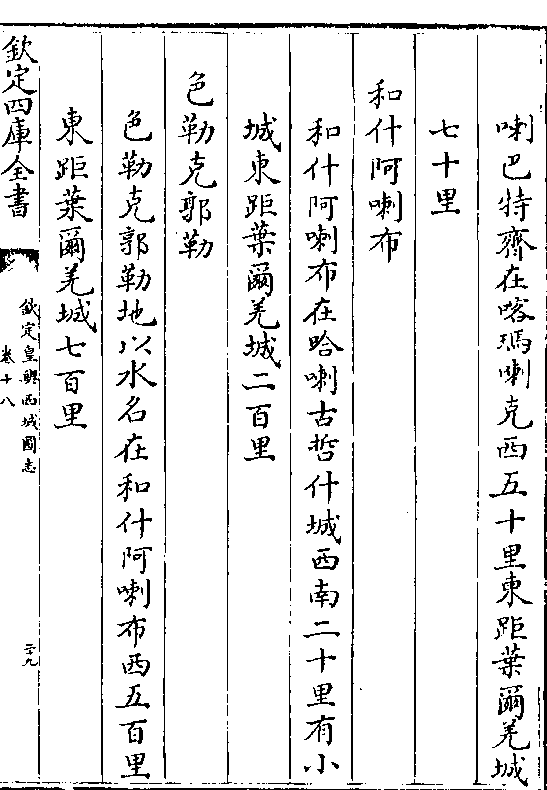 喇巴特齊在喀瑪喇克西五十里東距葉爾羌城
七十里
和什阿喇布
和什阿喇布在哈喇古哲什城西南二十里有小
城東距葉爾羌城二百里
色勒克郭勒
色勒克郭勒地以水名在和什阿喇布西五百里
東距葉爾羌城七百里
欽定四庫全書
欽定皇輿西域圖志
卷十八
二十九